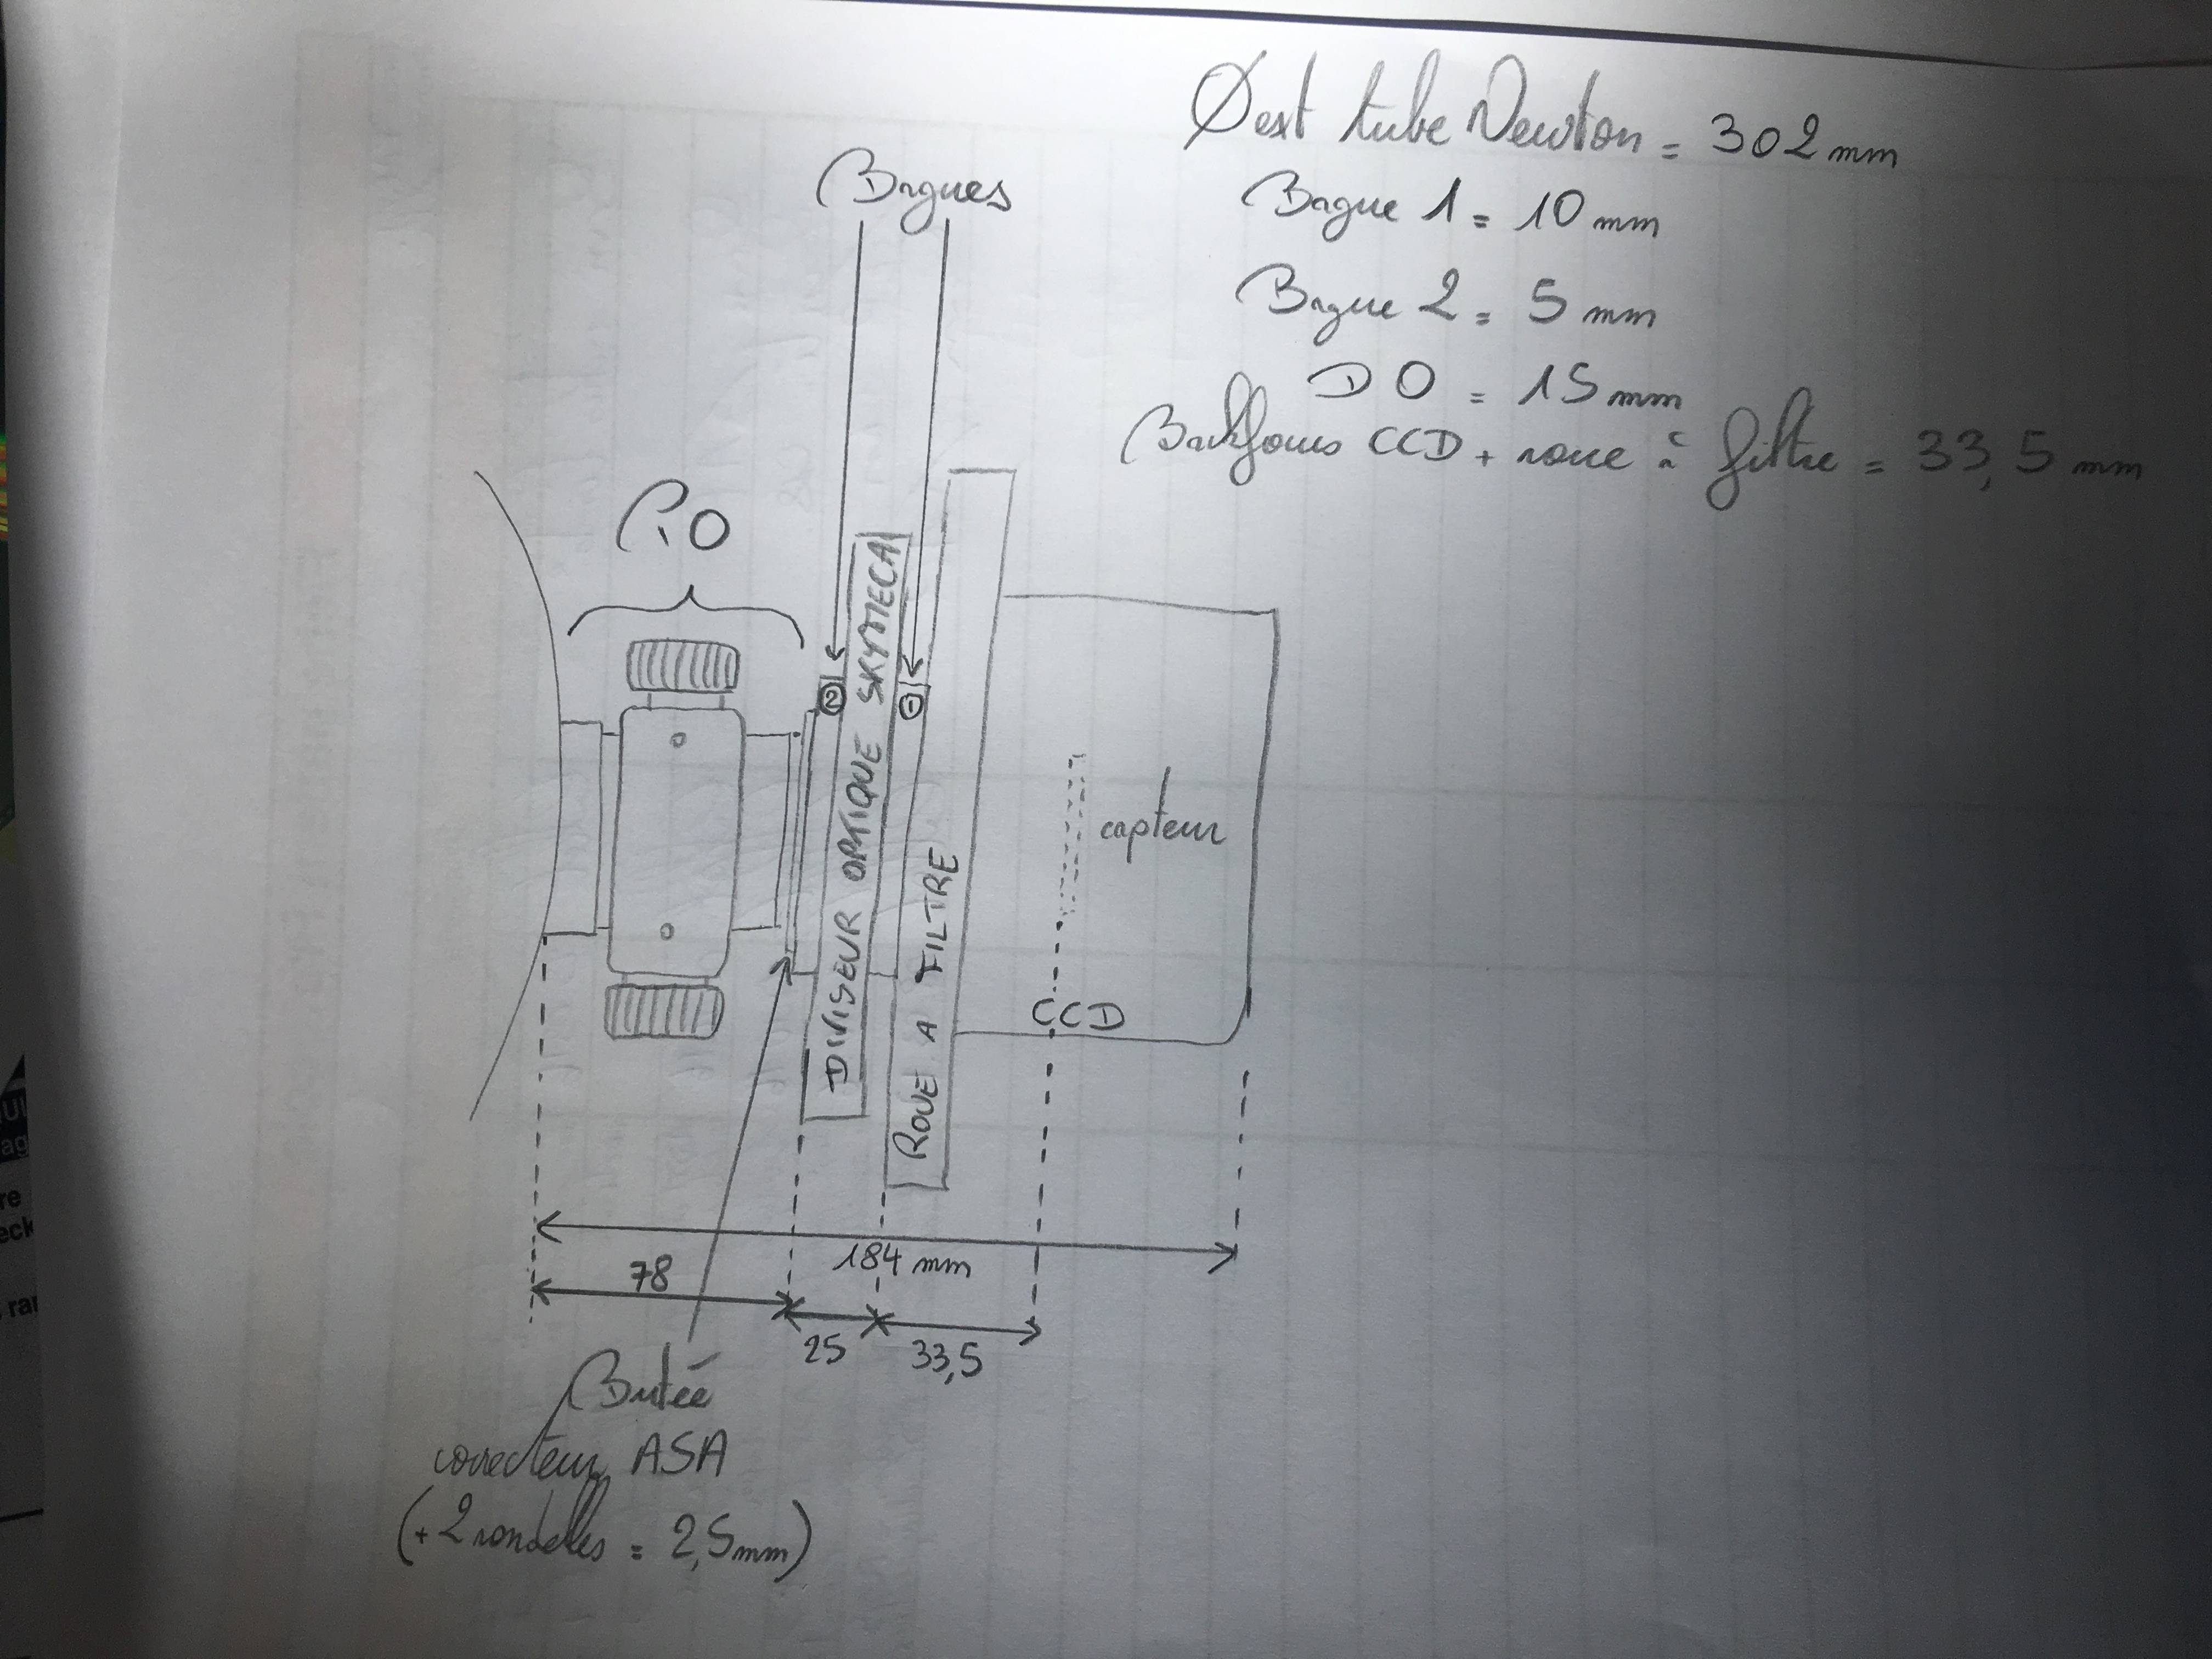 Øext tube Newton = 302 mm
Bague 1 = 10 mm
Bague 2 = 5 mm
DO = 15 mm
Backfocus CCD + roue à filtre = 33,5 mm
Bagues
P.O
②
①
DIVISEUR OPTIQUE SKYMECA
ROUE A FILTRE
capteur
CCD
184 mm
78
25
33,5
Butée
correcteur ASA
(+ 2 rondelles = 2,5mm)